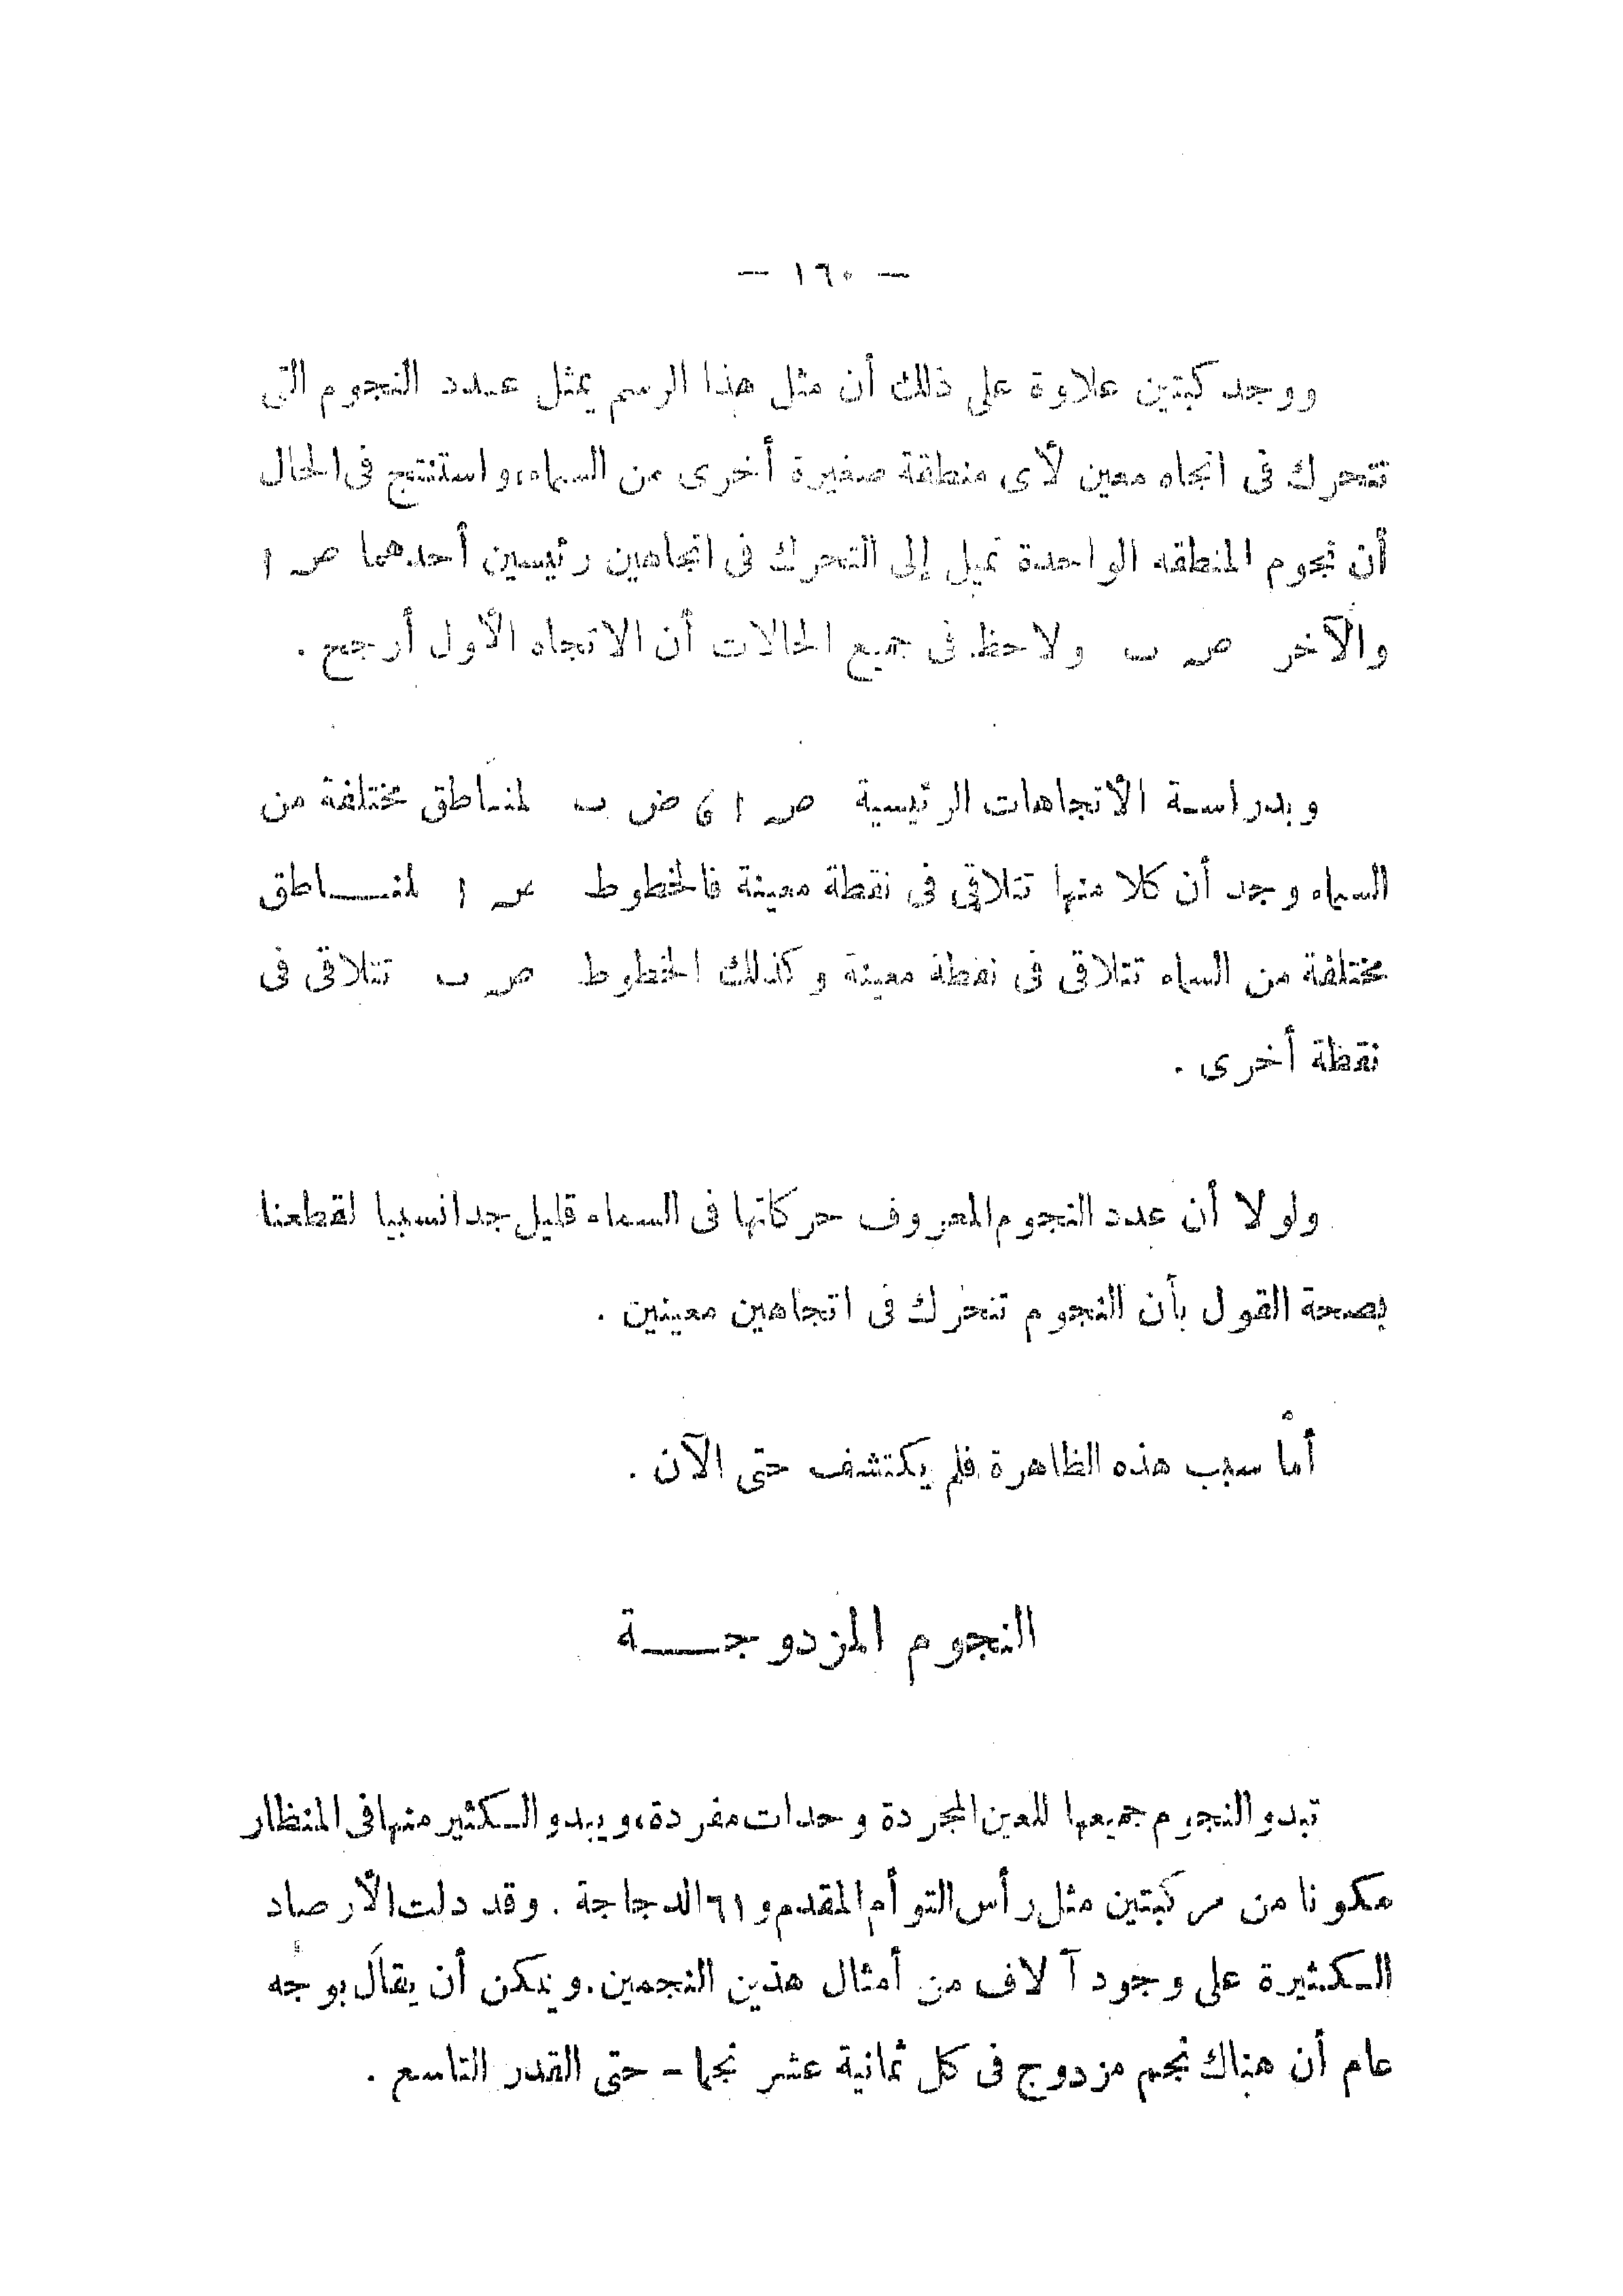 — ١٦٠ —
ووجد كبتين علاوة على ذلك أن مثل هذا الرسم يمثل عدد النجوم التى
تتحرك فى اتجاه معين لأى منطقة صغيرة أخرى من السماء، واستنتج فى الحال
أن نجوم المنطقه الواحدة تميل إلى التحرك فى اتجاهين رئيسين أحدهما ص ا
والآخر ص ب ولاحظ فى جميع الحالات أن الاتجاه الأول أرجح .
وبدراسة الأتجاهات الرئيسية ص ا ، ص ب لمناطق مختلفة من
السماء وجد أن كلا منها تتلاقى فى نقطة معينة فالخطوط ص ا لمنـــاطق
مختلفة من السماء تتلاقى فى نقطة معينة وكذلك الخطوط ص ب تتلاقى فى
نقطة أخرى .
ولولا أن عدد النجوم المعروف حركاتها فى السماء قليل جدا نسبيا لقطعنا
بصحة القول بأن النجوم تتحرك فى اتجاهين معينين .
أما سبب هذه الظاهرة فلم يكتشف حتى الآن .
النجوم المزدوجـــة
تبدو النجوم جميعها للعين المجردة وحدات مفردة، ويبدو الكثير منها فى المنظار
مكونا من مركبتين مثل رأس التوأم المقدم و ٦١ الدجاجة . وقد دلت الأرصاد
الكثيرة على وجود آلاف من أمثال هذين النجمين. ويمكن أن يقال بوجه
عام أن هناك نجم مزدوج فى كل ثمانية عشر نجما - حتى القدر التاسع .